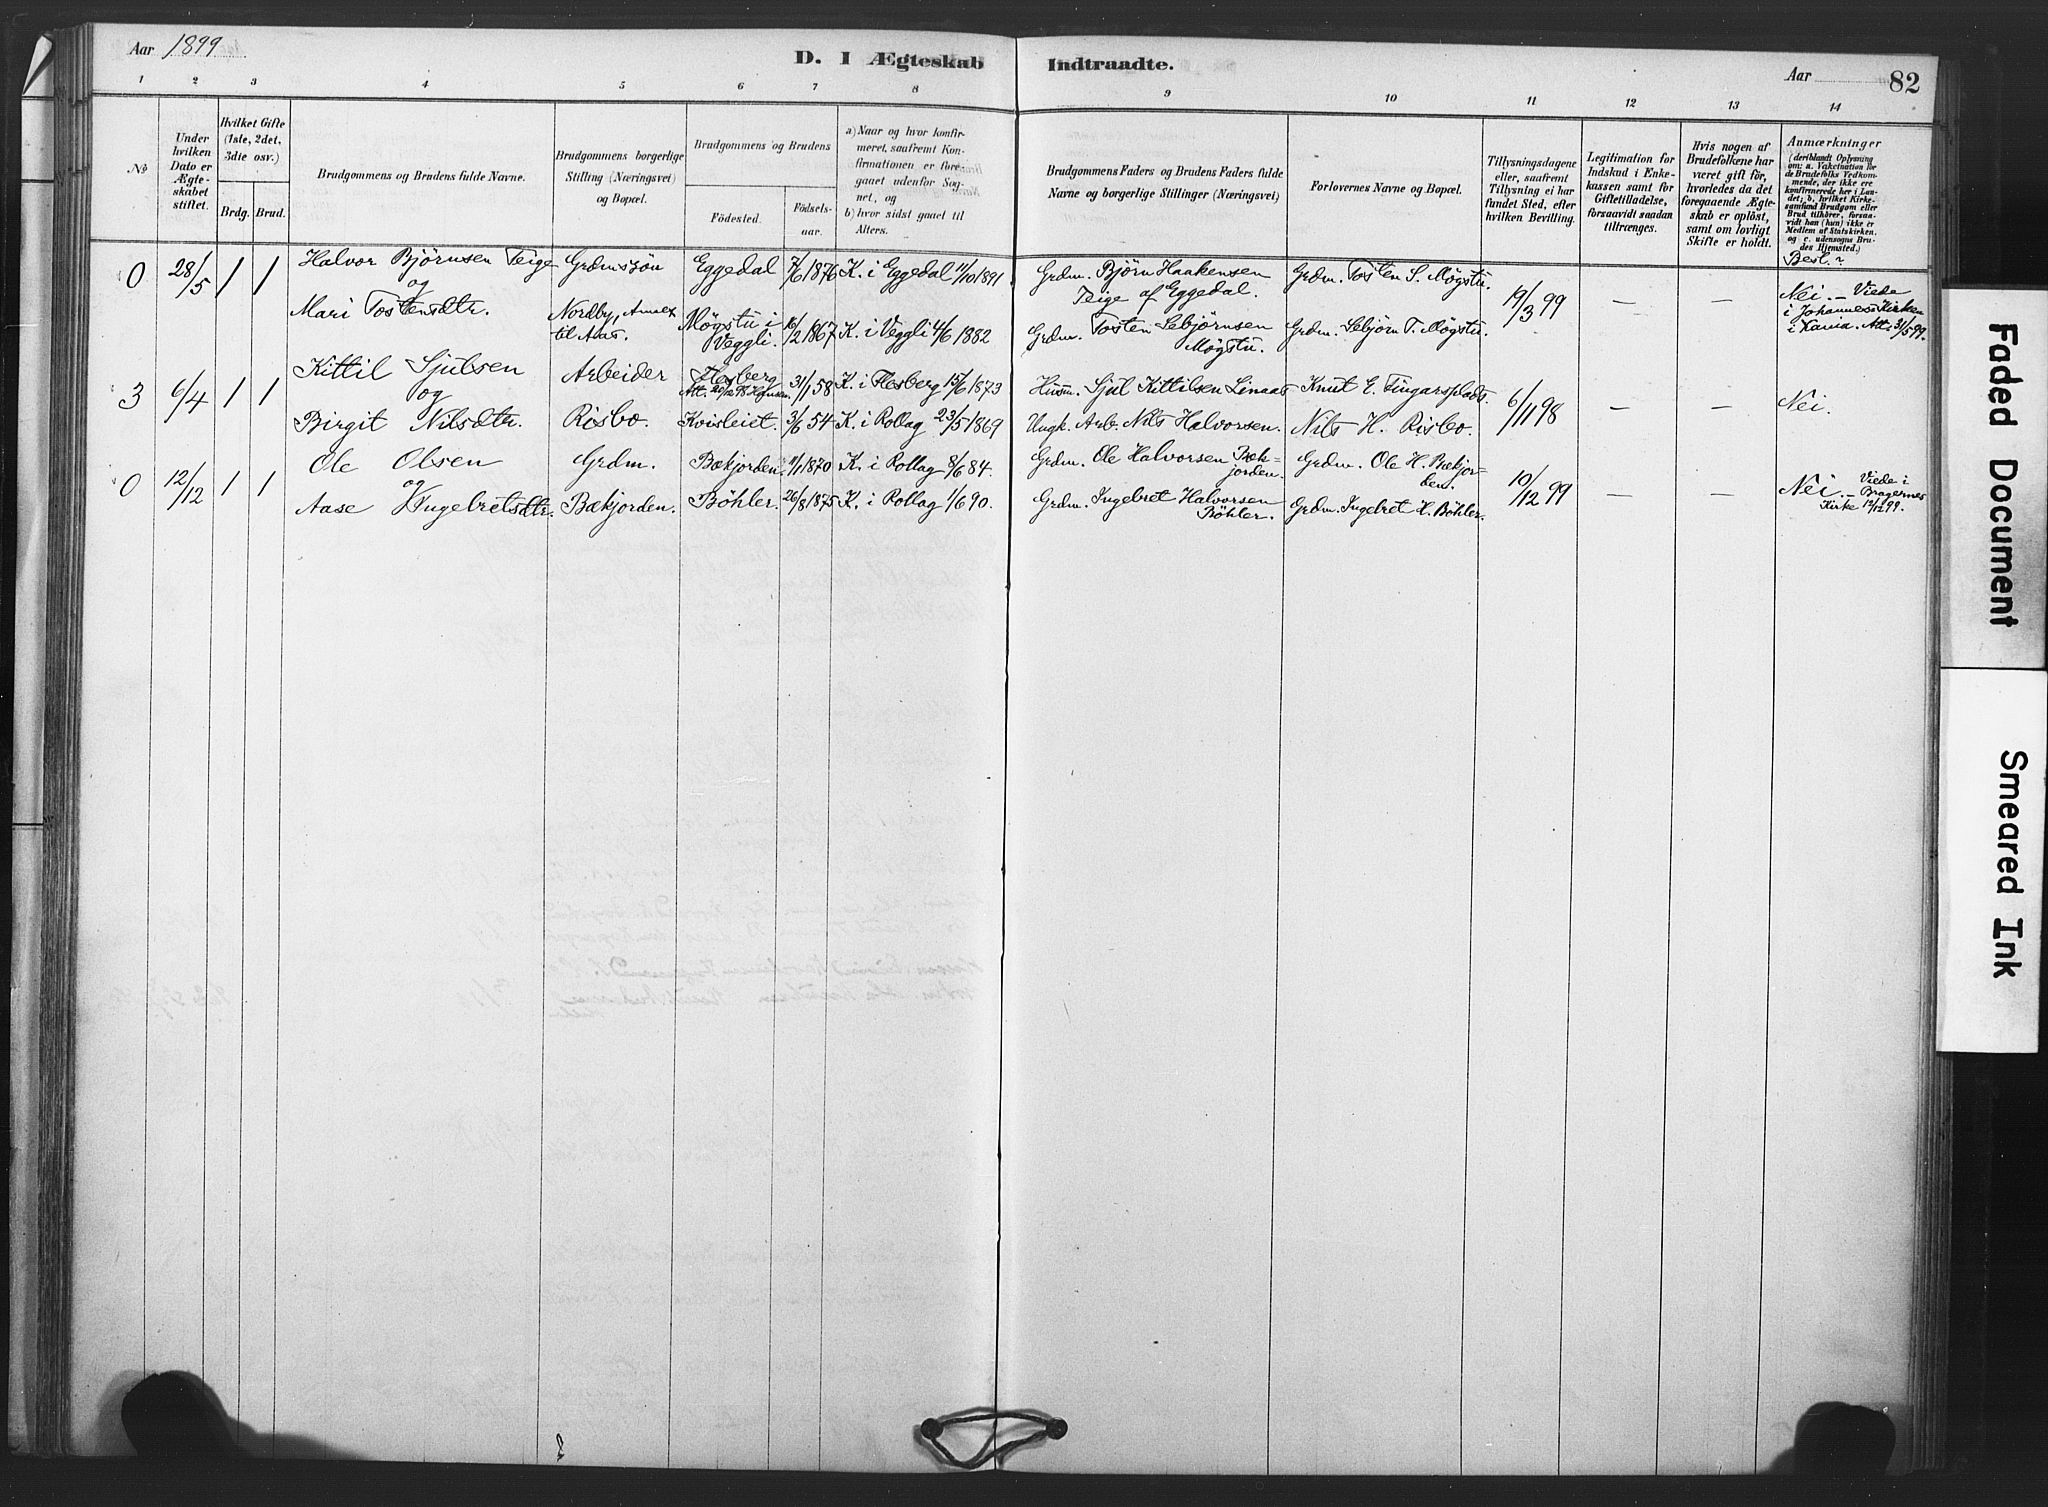 Aar 1899
D. I Ægteskab Indtraadte.
Aar
82
1 2 3 4 5 6 7 8 9 10 11 12 13 14
No.
Under hvilken Dato er Ægteskabet stiftet.
Hvilket Gifte (1ste, 2det, 3die osv.)
Brdg. Brud.
Brudgommens og Brudens fulde Navne.
Brudgommens borgerlige Stilling (Næringsvei) og Bopæl.
Brudgommens og Brudens
Födested.
Födselsaar.
a) Naar og hvor konfirmeret, saafremt Konfirmationen er foregaaet udenfor Sognet, og
b) hvor sidst gaaet til Alters.
Brudgommens Faders og Brudens Faders fulde Navne og borgerlige Stillinger (Næringsvei)
Forlovernes Navne og Bopæl.
Tillysningsdagene eller, saafremt Tillysning ei har fundet Sted, efter hvilken Bevilling.
Legitimation for Indskud i Enkekassen samt for Giftetilladelse, forsaavidt saadan tiltrænges.
Hvis nogen af Brudefolkene har været gift för, hvorledes da det foregaaende Ægteskab er oplöst, samt om lovligt Skifte er holdt.
Anmærkninger
(deriblandt Oplysning om: a. Vakcination for de Brudefolks Vedkommende, der ikke ere konfirmerede her i Landet; b. hvilket Kirkesamfund Brudgom eller Brud tilhörer, forsaavidt han (hun) ikke er Medlem af Statskirken, og c. udensogns Brudes Hjemsted.)
Besl.?
0 28/5 1 1 Halvor Björnsen Teige Grdmssön Eggedal 7/6 1876 K. i Eggedal 11/10 1891 Grdm. Björn Haakensen Teige af Eggedal. Grdm. Tosten S. Møgstu. 19/3 99 — — Nei. — Viede i Johannes Kirken i Xania. Att. 31/5 99.
og
Mari Tostensdtr. Nordby, Amt til Aas. Møgstu i Veggli. 16/2 1867 K. i Veggli 4/6 1882 Grdm. Tosten Sebjörnsen Møgstu. Grdm. Sebjörn T. Møgstu.
3 6/4 1 1 Kittil Sjulsen Arbeider Flesberg 31/1 58 K. i Flesberg 15/6 1873 Husm. Sjul Kittilsen Linaas Knut E. 6/11 98 — — Nei.
og
Birgit Nilsdtr. Risbo. Kvisleiet. 3/6 54 K. i Rollag 23/5 1869 Ungk. Arb. Nils Halvorsen. Nils H. Risbo.
0 12/12 1 1 Ole Olsen Grdm. Bækjorden. 11/1 1870 K. i Rollag 8/6 84. Grdm. Ole Halvorsen Bækjorden. Grdm. Ole H. Bækjorden. 10/12 99 — — Nei. — Viede i Bragernes Kirke 12/12 99.
og
Aase Ingebretsdtr. Bækjorden. Böhler. 26/8 1875 K. i Rollag 1/6 90. Grdm. Ingebret Halvorsen Böhler. Grdm. Ingebret H. Böhler.
Faded Document
Smeared Ink